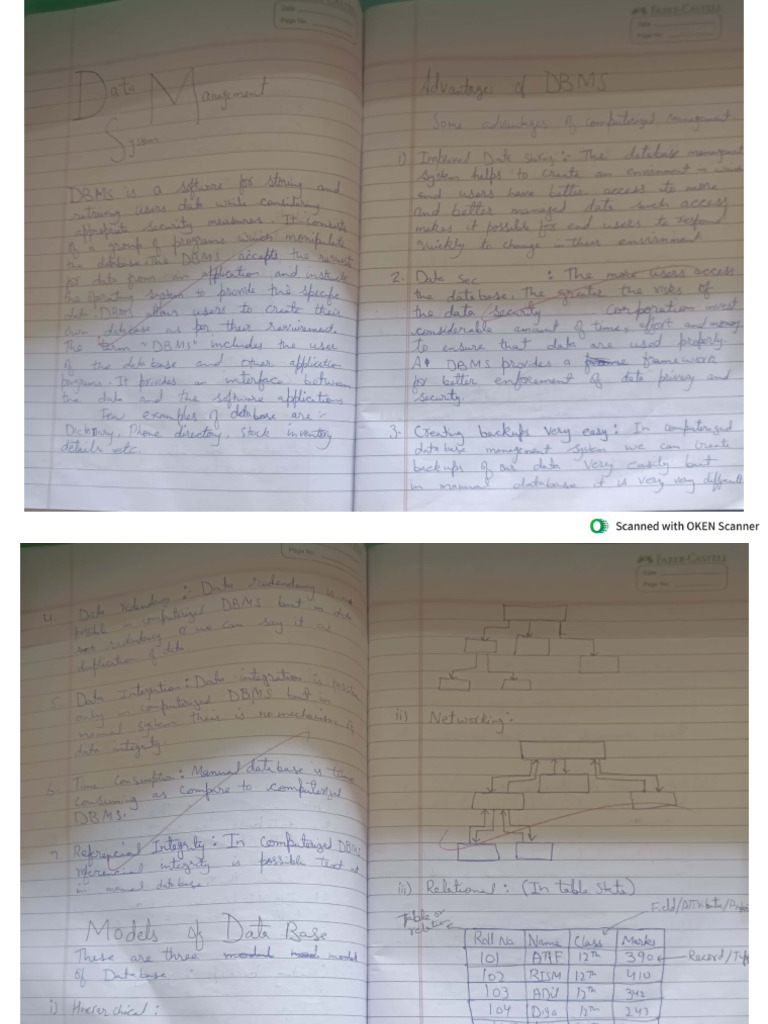 Date
Page No
Data Management
System
DBMS is a software for storing and
retrieving users data while considering
appropriate security measures. It consists
of a group of programs which manipulate
the database. The DBMS accepts the request
for data from an application and instruct
the operating system to provide the specific
data. DBMS allows users to create their
own database as per their requirement.
The term "DBMS" includes the user
of the data base and other application
programs. It provides an interface between
the data and the software applications
Few examples of database are :-
Dictionary, Phone directory, Stock inventory
details etc.
FABER-CASTELL
Date
Page No
Advantages of DBMS
Some advantages of computerized management
1) Improved Data sharing : The database management
system helps to create an environment in which
end users have better access to more
and better managed data such access
makes it possible for end users to respond
quickly to change in their environment
2. Data sec : The more users access
the database, The greater the risks of
the data security corporation invest
considerable amount of time, effort and money
to ensure that data are used properly.
A DBMS provides a framework
for better enforcement of data privacy and
security.
3. Creating backups very easy : In computerized
data base management system we can create
backups of our data very easily but
in manual database it is very very difficult
Scanned with OKEN Scanner
Page No
4. Data redundancy : Data redundancy is
in computerized DBMS but in
redundancy or we can say it as
duplication of data
5. Data Integration : Data integration is possible
only in computerized DBMS but in
manual system there is no mechanism of
data integrity.
6. Time Consumption : Manual database is time
consuming as compare to computerized
DBMS.
7. Referencial Integrity : In Computerized DBMS
referencial integrity is possible not
in manual database
Models of Data Base
These are three model
of Database
i) Hierarchical :
FABER-CASTELL
Date
Page No
ii) Networking :
iii) Relational : (In table state)
Field/Attribute/
Table or
relation
Roll No Name Class Marks
101 ATIF 12th 390 Record/
102 RISM 12th 410
103 ADil 12th 342
104 Diya 12th 243